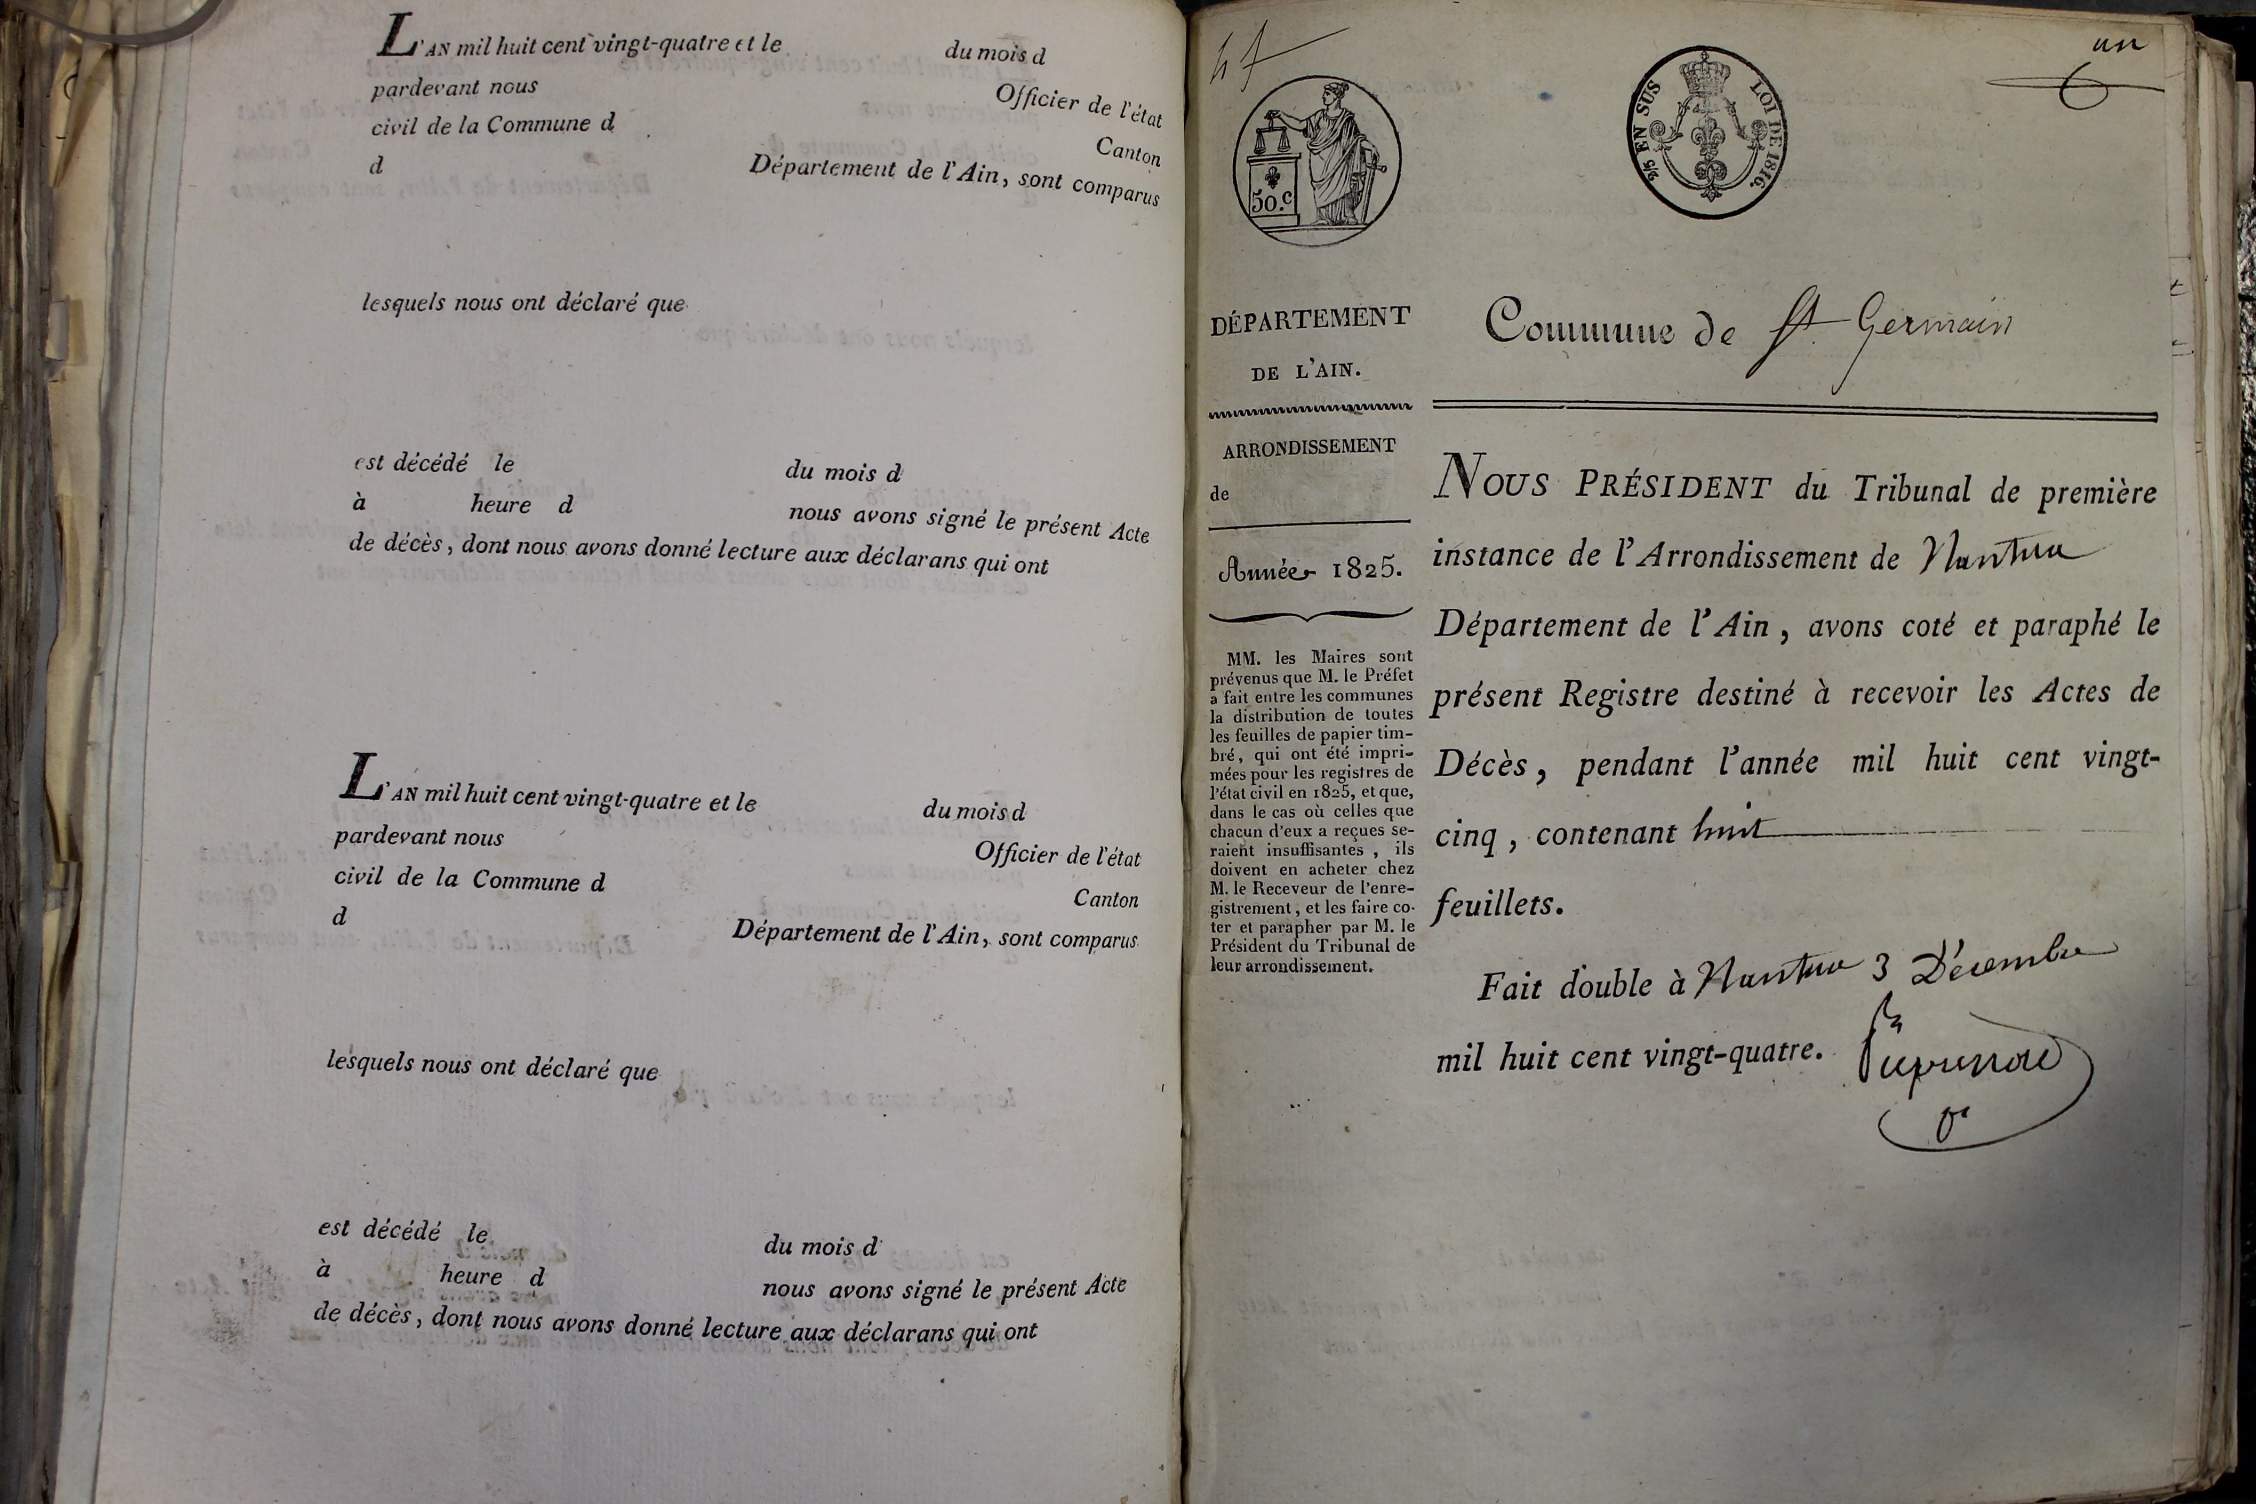 L'AN mil huit cent vingt-quatre et le du mois d
pardevant nous Officier de l'état
civil de la Commune d Canton
d Département de l'Ain, sont comparus
lesquels nous ont déclaré que
est décédé le du mois d
à heure d nous avons signé le présent Acte
de décès, dont nous avons donné lecture aux déclarans qui ont
L'AN mil huit cent vingt-quatre et le du mois d
pardevant nous Officier de l'état
civil de la Commune d Canton
d Département de l'Ain, sont comparus
lesquels nous ont déclaré que
est décédé le du mois d
à heure d nous avons signé le présent Acte
de décès, dont nous avons donné lecture aux déclarans qui ont
un
50.c
2/5 EN SUS LOI DE 1816.
DÉPARTEMENT
DE L'AIN.
ARRONDISSEMENT
de
Année 1825.
MM. les Maires sont
prévenus que M. le Préfet
a fait entre les communes
la distribution de toutes
les feuilles de papier tim-
bré, qui ont été impri-
mées pour les registres de
l'état civil en 1825, et que,
dans le cas où celles que
chacun d'eux a reçues se-
raient insuffisantes, ils
doivent en acheter chez
M. le Receveur de l'enre-
gistrement, et les faire co-
ter et parapher par M. le
Président du Tribunal de
leur arrondissement.
Commune de St. Germain
NOUS PRÉSIDENT du Tribunal de première
instance de l'Arrondissement de Nantua
Département de l'Ain, avons coté et paraphé le
présent Registre destiné à recevoir les Actes de
Décès, pendant l'année mil huit cent vingt-
cinq, contenant huit
feuillets.
Fait double à Nantua 3 Décembre
mil huit cent vingt-quatre.